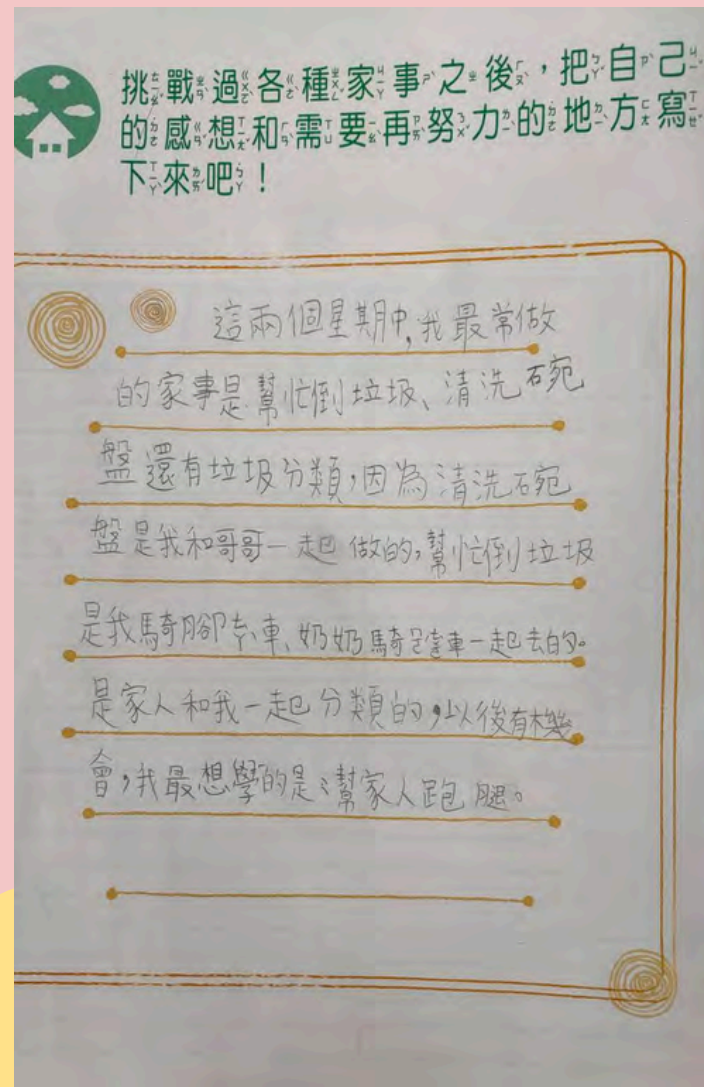 挑戰過各種家事之後，把自己
的感想和需要再努力的地方寫
下來吧！
這兩個星期中,我最常做
的家事是幫忙倒垃圾、清洗碗
盤還有垃圾分類,因為清洗碗
盤是我和哥哥一起做的,幫忙倒垃圾
是我騎腳車、奶奶騎車一起去的。
是家人和我一起分類的,以後有機
會,我最想學的是:幫家人跑腿。